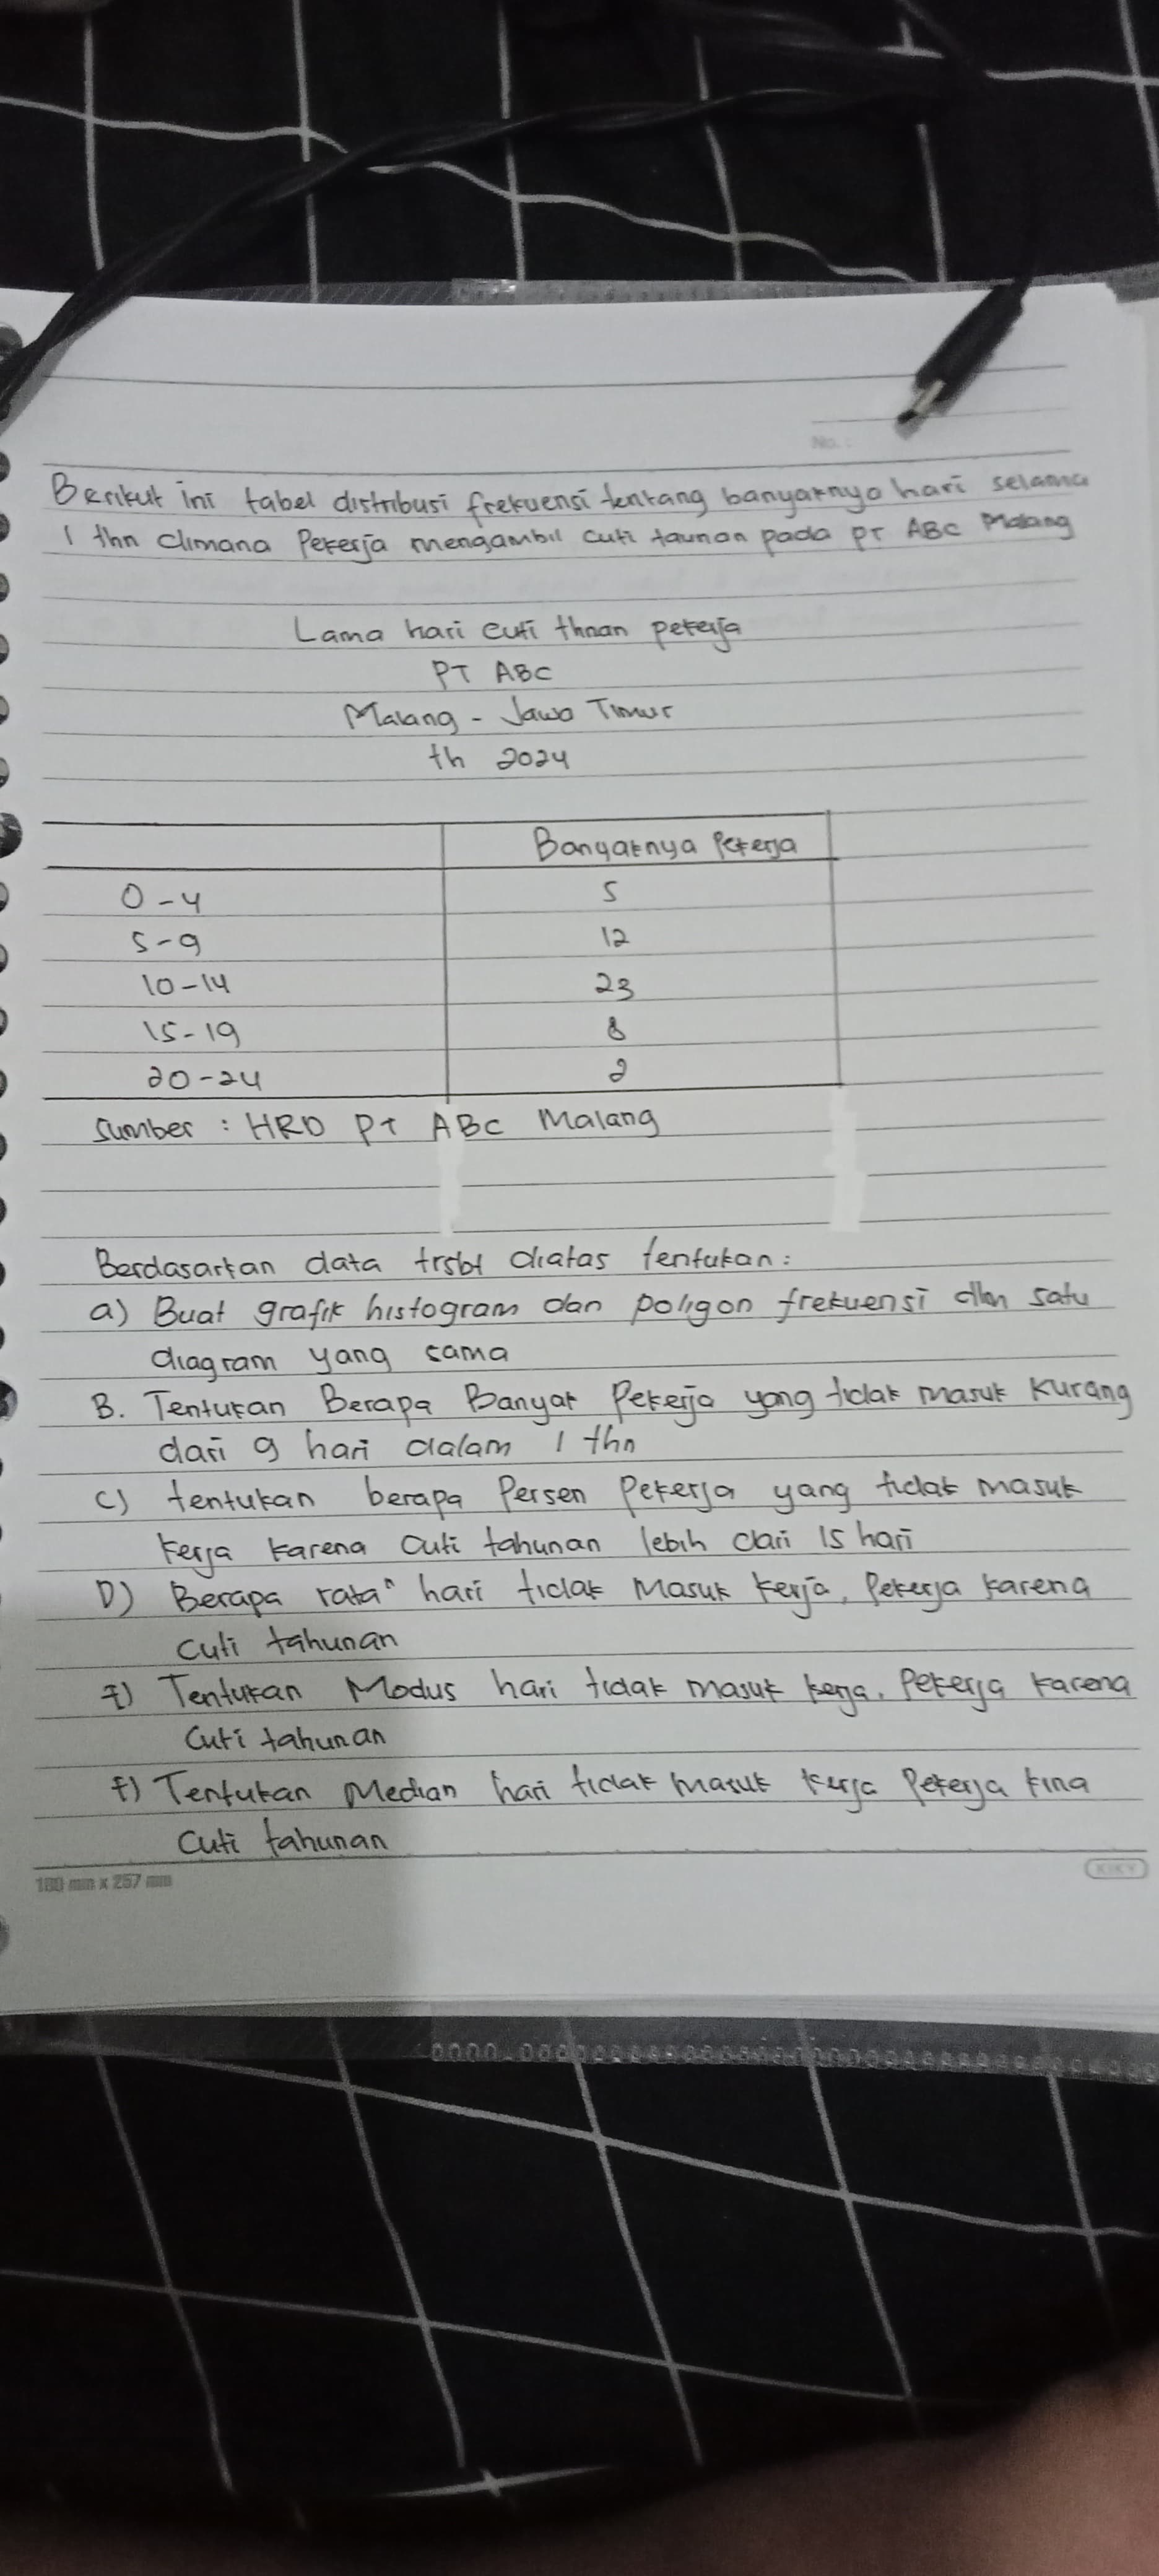 No. :
Berikut ini tabel distribusi frekuensi tentang banyaknya hari selama
1 thn dimana Pekerja mengambil cuti taunan pada PT ABC Malang
Lama hari cuti thnan pekerja
PT ABC
Malang - Jawa Timur
th 2024
Banyaknya Pekerja
0-4 5
5-9 12
10-14 23
15-19 8
20-24 2
Sumber : HRD PT ABC Malang
Berdasarkan data trsbt diatas tentukan:
a) Buat grafik histogram dan poligon frekuensi dlm satu
diagram yang sama
B. Tentukan Berapa Banyak Pekerja yang tidak masuk kurang
dari 9 hari dalam 1 thn
c) tentukan berapa Persen Pekerja yang tidak masuk
kerja karena Cuti tahunan lebih dari 15 hari
D) Berapa rata" hari tidak Masuk kerja, Pekerja karena
cuti tahunan
E) Tentukan Modus hari tidak masuk kerja, Pekerja karena
Cuti tahunan
f) Tentukan Median hari tidak masuk kerja Pekerja krna
Cuti tahunan
180 mm x 257 mm
KIKY